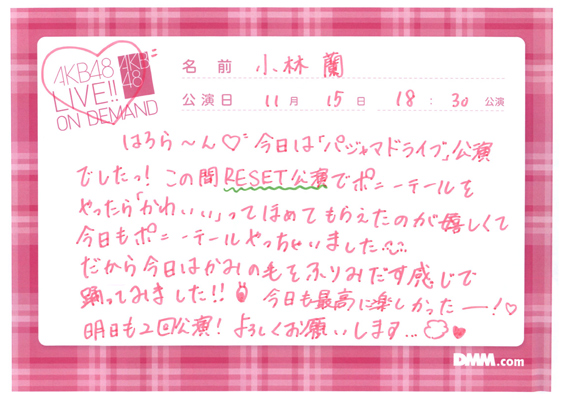 AKB48
LIVE!!
ON DEMAND
AKB
48
名前 小林 蘭
公演日 11月 15日 18:30 公演
はろら～ん♡ 今日は「パジャマドライブ」公演
でしたっ! この間RESET公演でポニーテールを
やったら「かわいい」ってほめてもらえたのが嬉しくて
今日もポニーテールやっちゃいました
だから今日はかみの毛をふりみだす感じで
踊ってみました!! 今日も最高に楽しかったー!♡
明日も2回公演! よろしくお願いします...
DMM.com